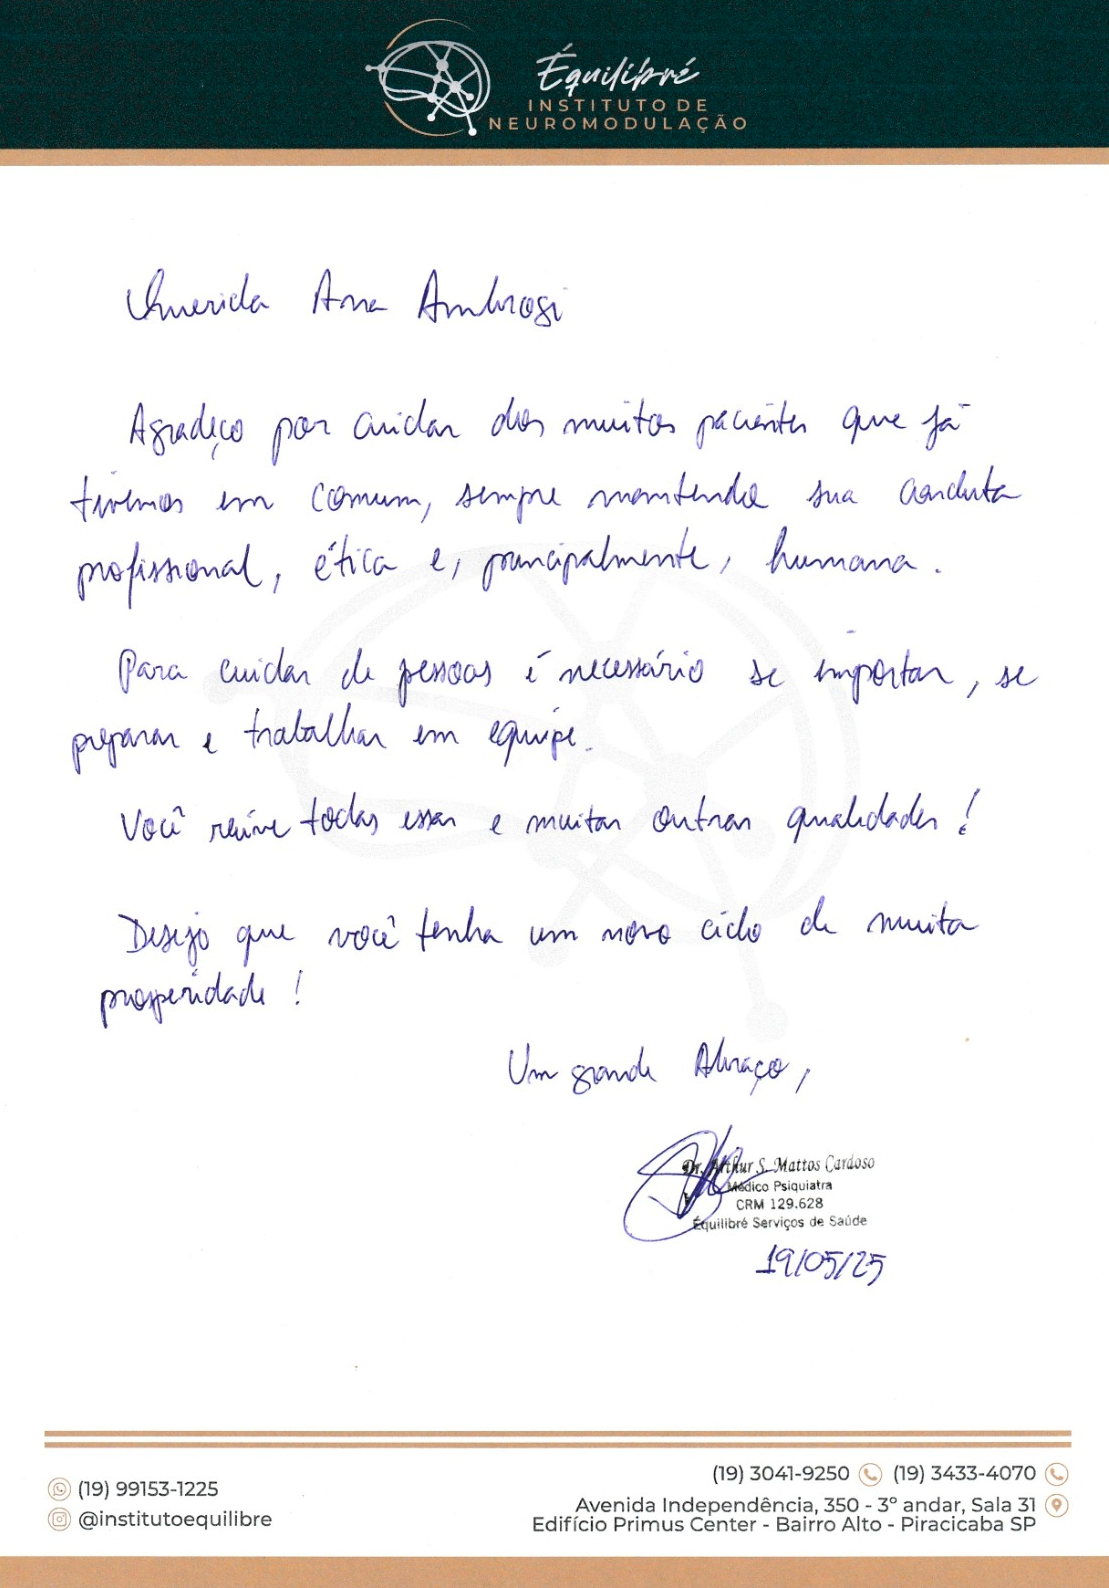 Équilibré
INSTITUTO DE
NEUROMODULAÇÃO
Querida Ana Ambrosi
Agradeço por cuidar dos muitos pacientes que já
tivemos em comum, sempre mantendo sua conduta
profissional, ética e, principalmente, humana.
Para cuidar de pessoas é necessário se importar, se
preparar e trabalhar em equipe.
Você reúne todas essas e muitas outras qualidades!
Desejo que você tenha um novo ciclo de muita
prosperidade!
Um grande Abraço,
Dr. Arthur S. Mattos Cardoso
Médico Psiquiatra
CRM 129.628
Équilibré Serviços de Saúde
19/05/25
(19) 3041-9250 (19) 3433-4070
(19) 99153-1225
Avenida Independência, 350 - 3º andar, Sala 31
@institutoequilibre
Edifício Primus Center - Bairro Alto - Piracicaba SP